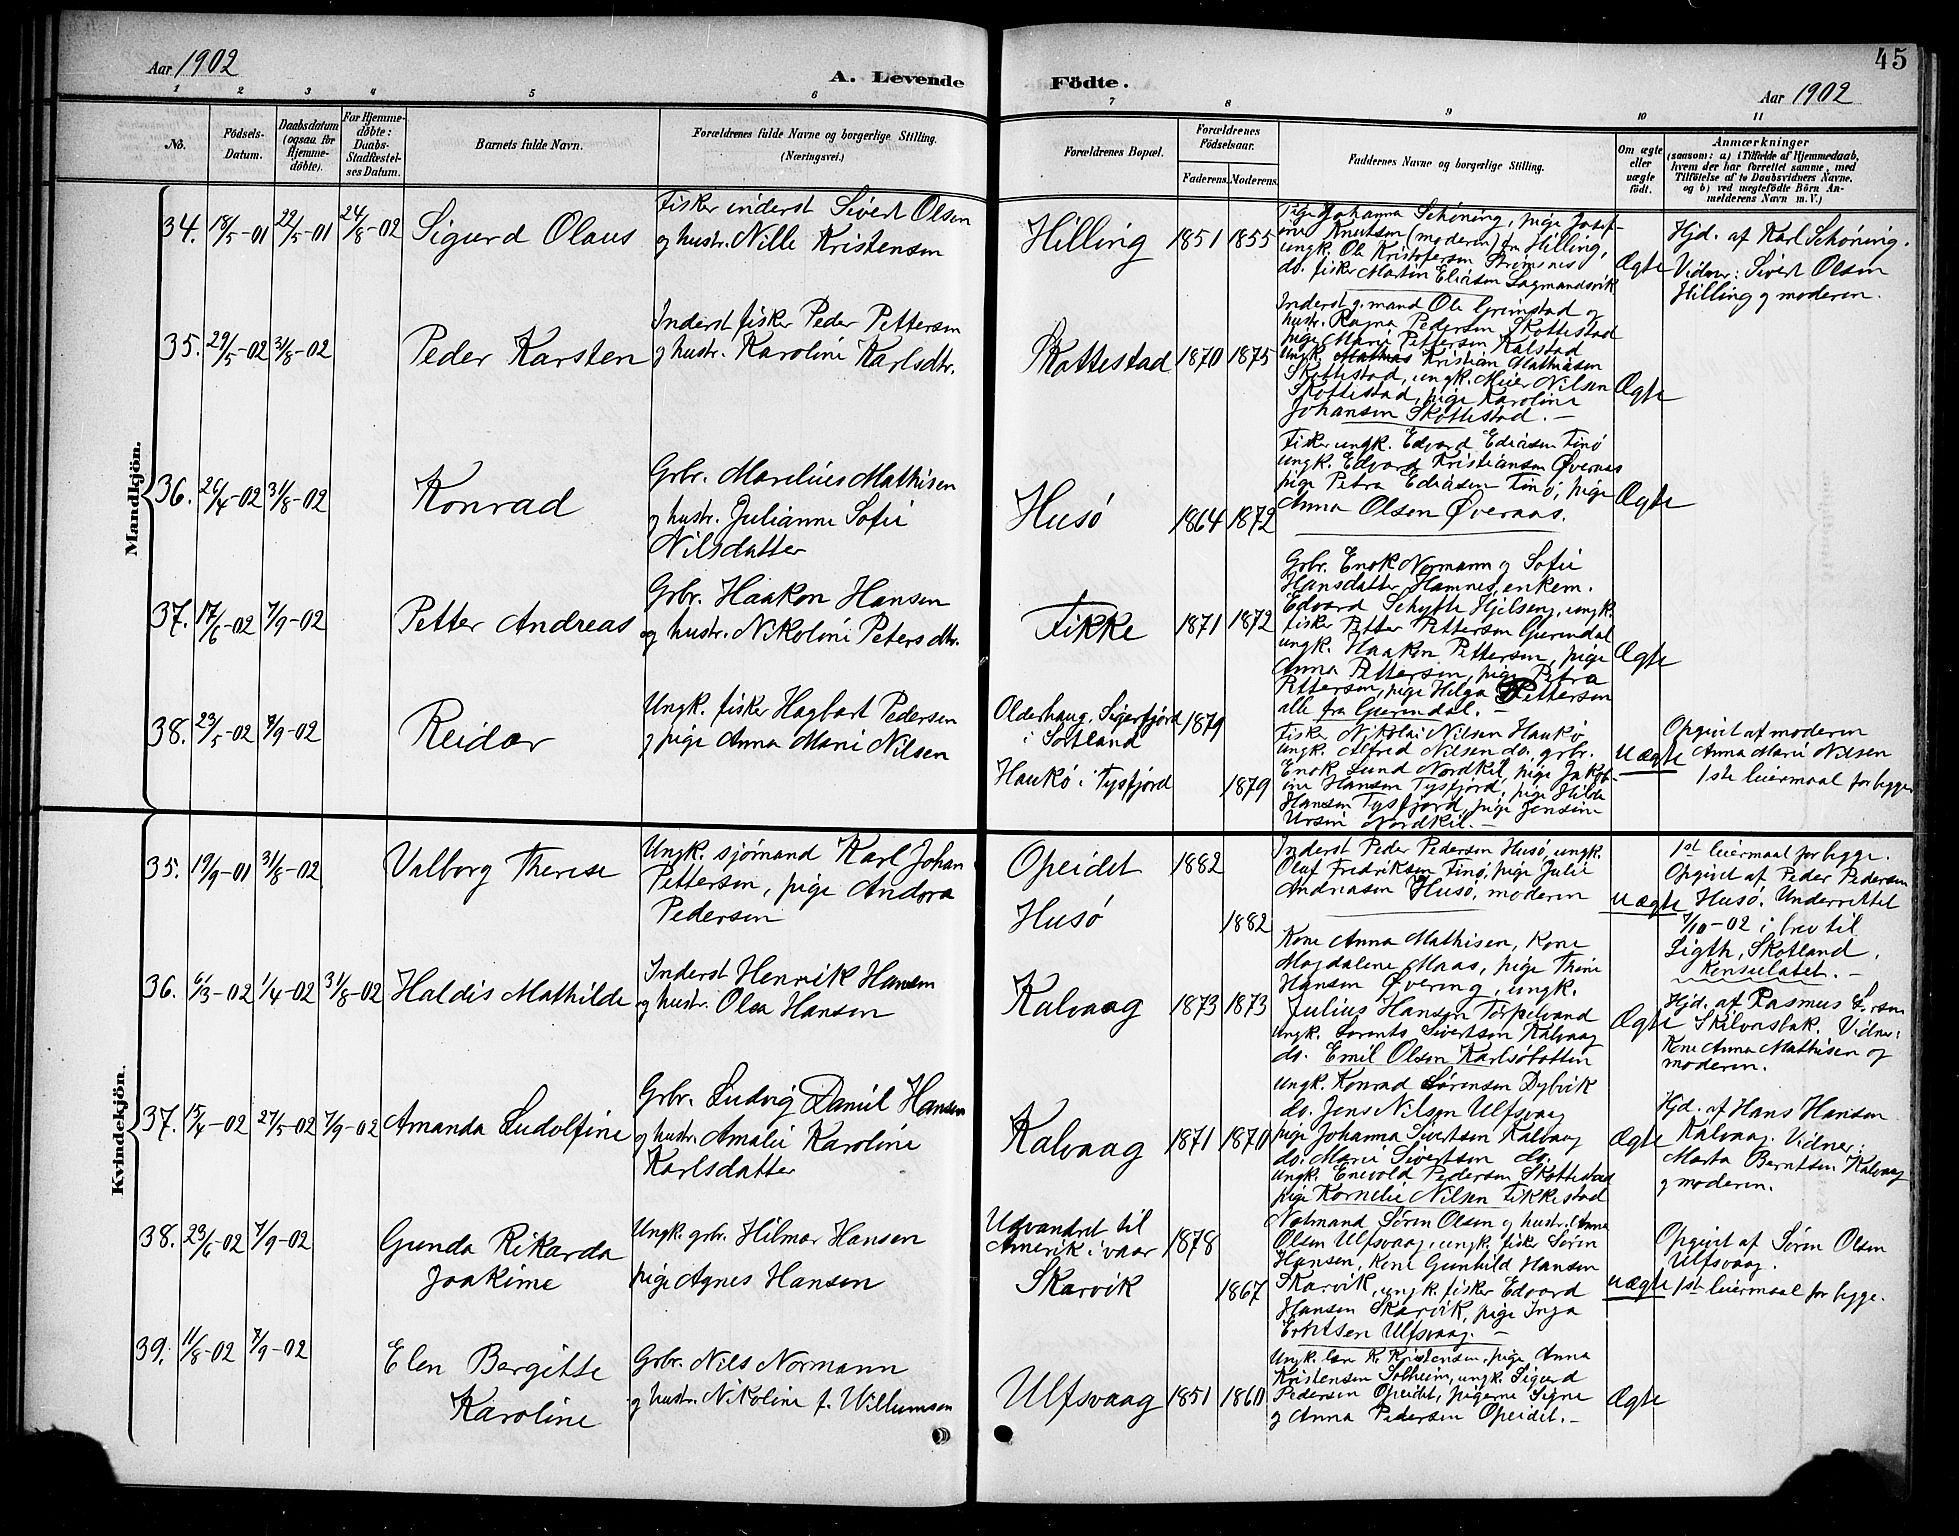 Aar 1902
A. Levende
Födte.
Aar 1902
45
1 2 3 4 5 6 7 8 9 10 11
No.
Födsels-
Datum.
Daabsdatum
(ogsaa for
Hjemme-
döbte).
For Hjemme-
döbte:
Daabs-
Stadfæstel-
ses Datum.
Barnets fulde Navn.
Forældrenes fulde Navne og borgerlige Stilling.
(Næringsvei.)
Forældrenes Bopæl.
Forældrenes
Födselsaar.
Faderens. Moderens.
Faddernes Navne og borgerlige Stilling.
Om ægte
eller
uægte
födt.
Anmærkninger
(saasom: a) i Tilfælde af Hjemmedaab,
hvem der har forrettet samme, med
Tilföielse af to Daabsvidners Navne,
og b) ved uægtefödte Börn An-
melderens Navn m. V.)
Mandkjön.
34. 18/5-01 22/5-01 24/8-02
Sigurd Olaus
Fisker inderst Sivert Olsen
og hustr. Nille Kristensen
Hilling 1851 1855
Pige Johanna Schøning, pige Josef-
ine Knutsen (moderen) fra Hilling,
ungk. Ole Kristofersen Strømsnes
do. fisker Martin Eliasen Lagmandsvik
Ægte
Hjd. af Karl Schøning.
Vidner: Sivert Olsen
Hilling og moderen.
35. 29/5-02 31/8-02
Peder Karsten
Inderst fisker Peder Pettersen
og hustr. Karoline Karlsdtr.
Skottestad 1870 1875
Inderst g. mand Ole Grimstad og
hustr. Ragna Pedersen Skottestad
pige Marie Pettersen Kalstad
Ungk. Mathias Kristian Mathiasen
Skottestad, ungk. Meier Nilsen
Skottestad, pige Karoline
Johansen Skottestad. —
Ægte
36. 26/4-02 31/8-02
Konrad
Grbr. Marelius Mathisen
og hustr. Julianne Sofie
Nilsdatter
Husø 1864 1872
Fisker ungk. Edvard Ediasen Finø
ungk. Edvard Kristiansen Øveraas
pige Petra Ediasen Finø, pige
Anna Olsen Øveraas.
Ægte
37. 17/6-02 7/9-02
Petter Andreas
Grbr. Haakon Hansen
og hustr. Nikoline Petersdtr.
Fikke 1871 1872
Grbr. Enok Normann og Sofie
Hansdatter Hamnes, enkem.
Edvard Schytte Hjelseng, ungk.
fisker Petter Pettersen Gurindal
ungk. Haakon Pettersen, pige
Anna Pettersen, pige Petra
Pettersen, pige Helga Pettersen
alle fra Gurindal. —
Ægte
38. 23/5-02 7/9-02
Reidar
Ungk. fisker Hagbart Pedersen
og pige Anna Marie Nilsen
Olderhaug, Sigerfjord
i Sortland 1879
Haukø i Tysfjord 1879
Fisker Nikolai Nilsen Haukø
ungk. Alfred Nilsen do. grbr.
Enok Lund Nordkil, pige Jakob-
ine Hansen Tysfjord, pige Hilda
Hansen Tysfjord, pige Jensine
Ursin Nordkil. —
uægte
Opgivet af moderen
Anna Marie Nilsen
1ste leiermaal for begge
Kvindekjön.
35. 19/9-01 31/8-02
Valborg Therese
Ungk. sjømand Karl Johan
Pettersen, pige Andora
Pedersen
Opeidet 1882
Husø 1882
Inderst Peder Pedersen Husø, ungk.
Oluf Fredriksen Finø, pige Julie
Andreasen Husø, moderen
uægte
1st leiermaal for begge.
Opgivet af Peder Pedersen
Husø. Underrettet
7/10-02 i brev til
Ligth, Skotland,
Konsulatet. —
36. 6/3-02 1/4-02 31/8-02
Haldis Mathilde
Inderst Henrik Hansen
og hustr. Olea Hansen
Kalvaag 1873 1873
Kone Anna Mathisen, Kone
Magdalene Maas, pige Thine
Hansen Øvereng, ungk.
Julius Hansen Torpelvand
ungk. Lorents Sivertsen Kalvaag
do. Emil Olsen Karlsøbotten
Ægte
Hjd. af Rasmus
Skilvasbak. Vidner:
Kone Anna Mathisen og
moderen.
37. 15/4-02 27/5-02 7/9-02
Amanda Ludolfine
Grbr. Ludvig Daniel Hansen
og hustr. Amalie Karoline
Karlsdatter
Kalvaag 1871 1870
Ungk. Konrad Sørensen Dybvik
do. Jens Nilsen Ulfsvaag
pige Johanna Sivertsen Kalvaag
do. Marie Sivertsen do.
Ungk. Enevold Pedersen Skottestad
pige Kornelie Nilsen Fikkestad
Ægte
Hjd. af Hans Hansen
Kalvaag. Vidner:
Marta Berntsen Kalvaag
og moderen.
38. 23/6-02 7/9-02
Gunda Rikarda
Joakime
Ungk. grbr. Hilmar Hansen
pige Agnes Hansen
Udvandret til
Amerik i vaar 1878
Skarvik 1867
Notmand Søren Olsen og hustr. Anne
Olsen Ulfsvaag, ungk. fisker Søren
Hansen, Kone Gunhild Hansen
Skarvik, ungk. fisker Edvard
Hansen Skarvik, pige Inga
Ulfsvaag. —
uægte
Opgivet af Søren Olsen
Ulfsvaag.
1st leiermaal for begge.
39. 11/8-02 7/9-02
Elen Bergitte
Karoline
Grbr. Nils Normann
og hustr. Nikoline f. Willumsen
Ulfsvaag 1851 1860
Ungk. K. Kristensen, pige Anna
Kristensen Solheim, ungk. Sigurd
Pedersen Opeidet, pigerne Signe
og Anna Pedersen Opeidet. —
Ægte